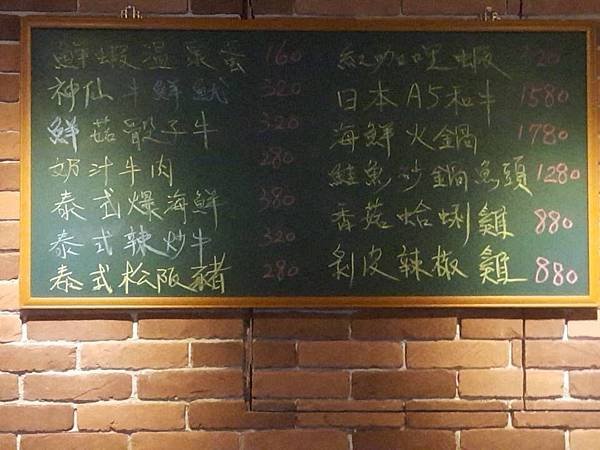 鮮蝦溫泉蛋 160
神仙牛鮮魷 320
鮮菇骰子牛 320
奶汁牛肉 280
泰式爆海鮮 380
泰式辣炒牛 320
泰式松阪豬 280
紅咖哩蝦 320
日本A5和牛 1580
海鮮火鍋 1780
鮭魚沙鍋魚頭 1280
香菇蛤蜊雞 880
剝皮辣椒雞 880